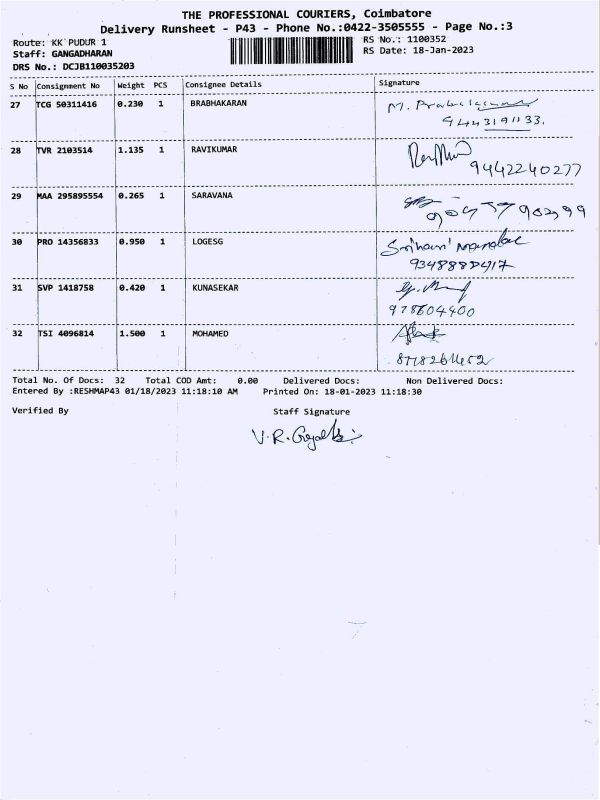 THE PROFESSIONAL COURIERS, Coimbatore
Delivery Runsheet - P43 - Phone No.:0422-3505555 - Page No.:3
Route: KK PUDUR 1 RS No.: 1100352
Staff: GANGADHARAN RS Date: 18-Jan-2023
DRS No.: DCJB110035203
S No Consignment No Weight PCS Consignee Details Signature
27 TCG 50311416 0.230 1 BRABHAKARAN M. Prabakaran
9443191133.
28 TVR 2103514 1.135 1 RAVIKUMAR
9442240277
29 MAA 295895554 0.265 1 SARAVANA
30 PRO 14356833 0.950 1 LOGESG
31 SVP 1418758 0.420 1 KUNASEKAR
978604400
32 TSI 4096814 1.500 1 MOHAMED
Total No. Of Docs: 32 Total COD Amt: 0.00 Delivered Docs: Non Delivered Docs:
Entered By :RESHMAP43 01/18/2023 11:18:10 AM Printed On: 18-01-2023 11:18:30
Verified By Staff Signature
V.R.